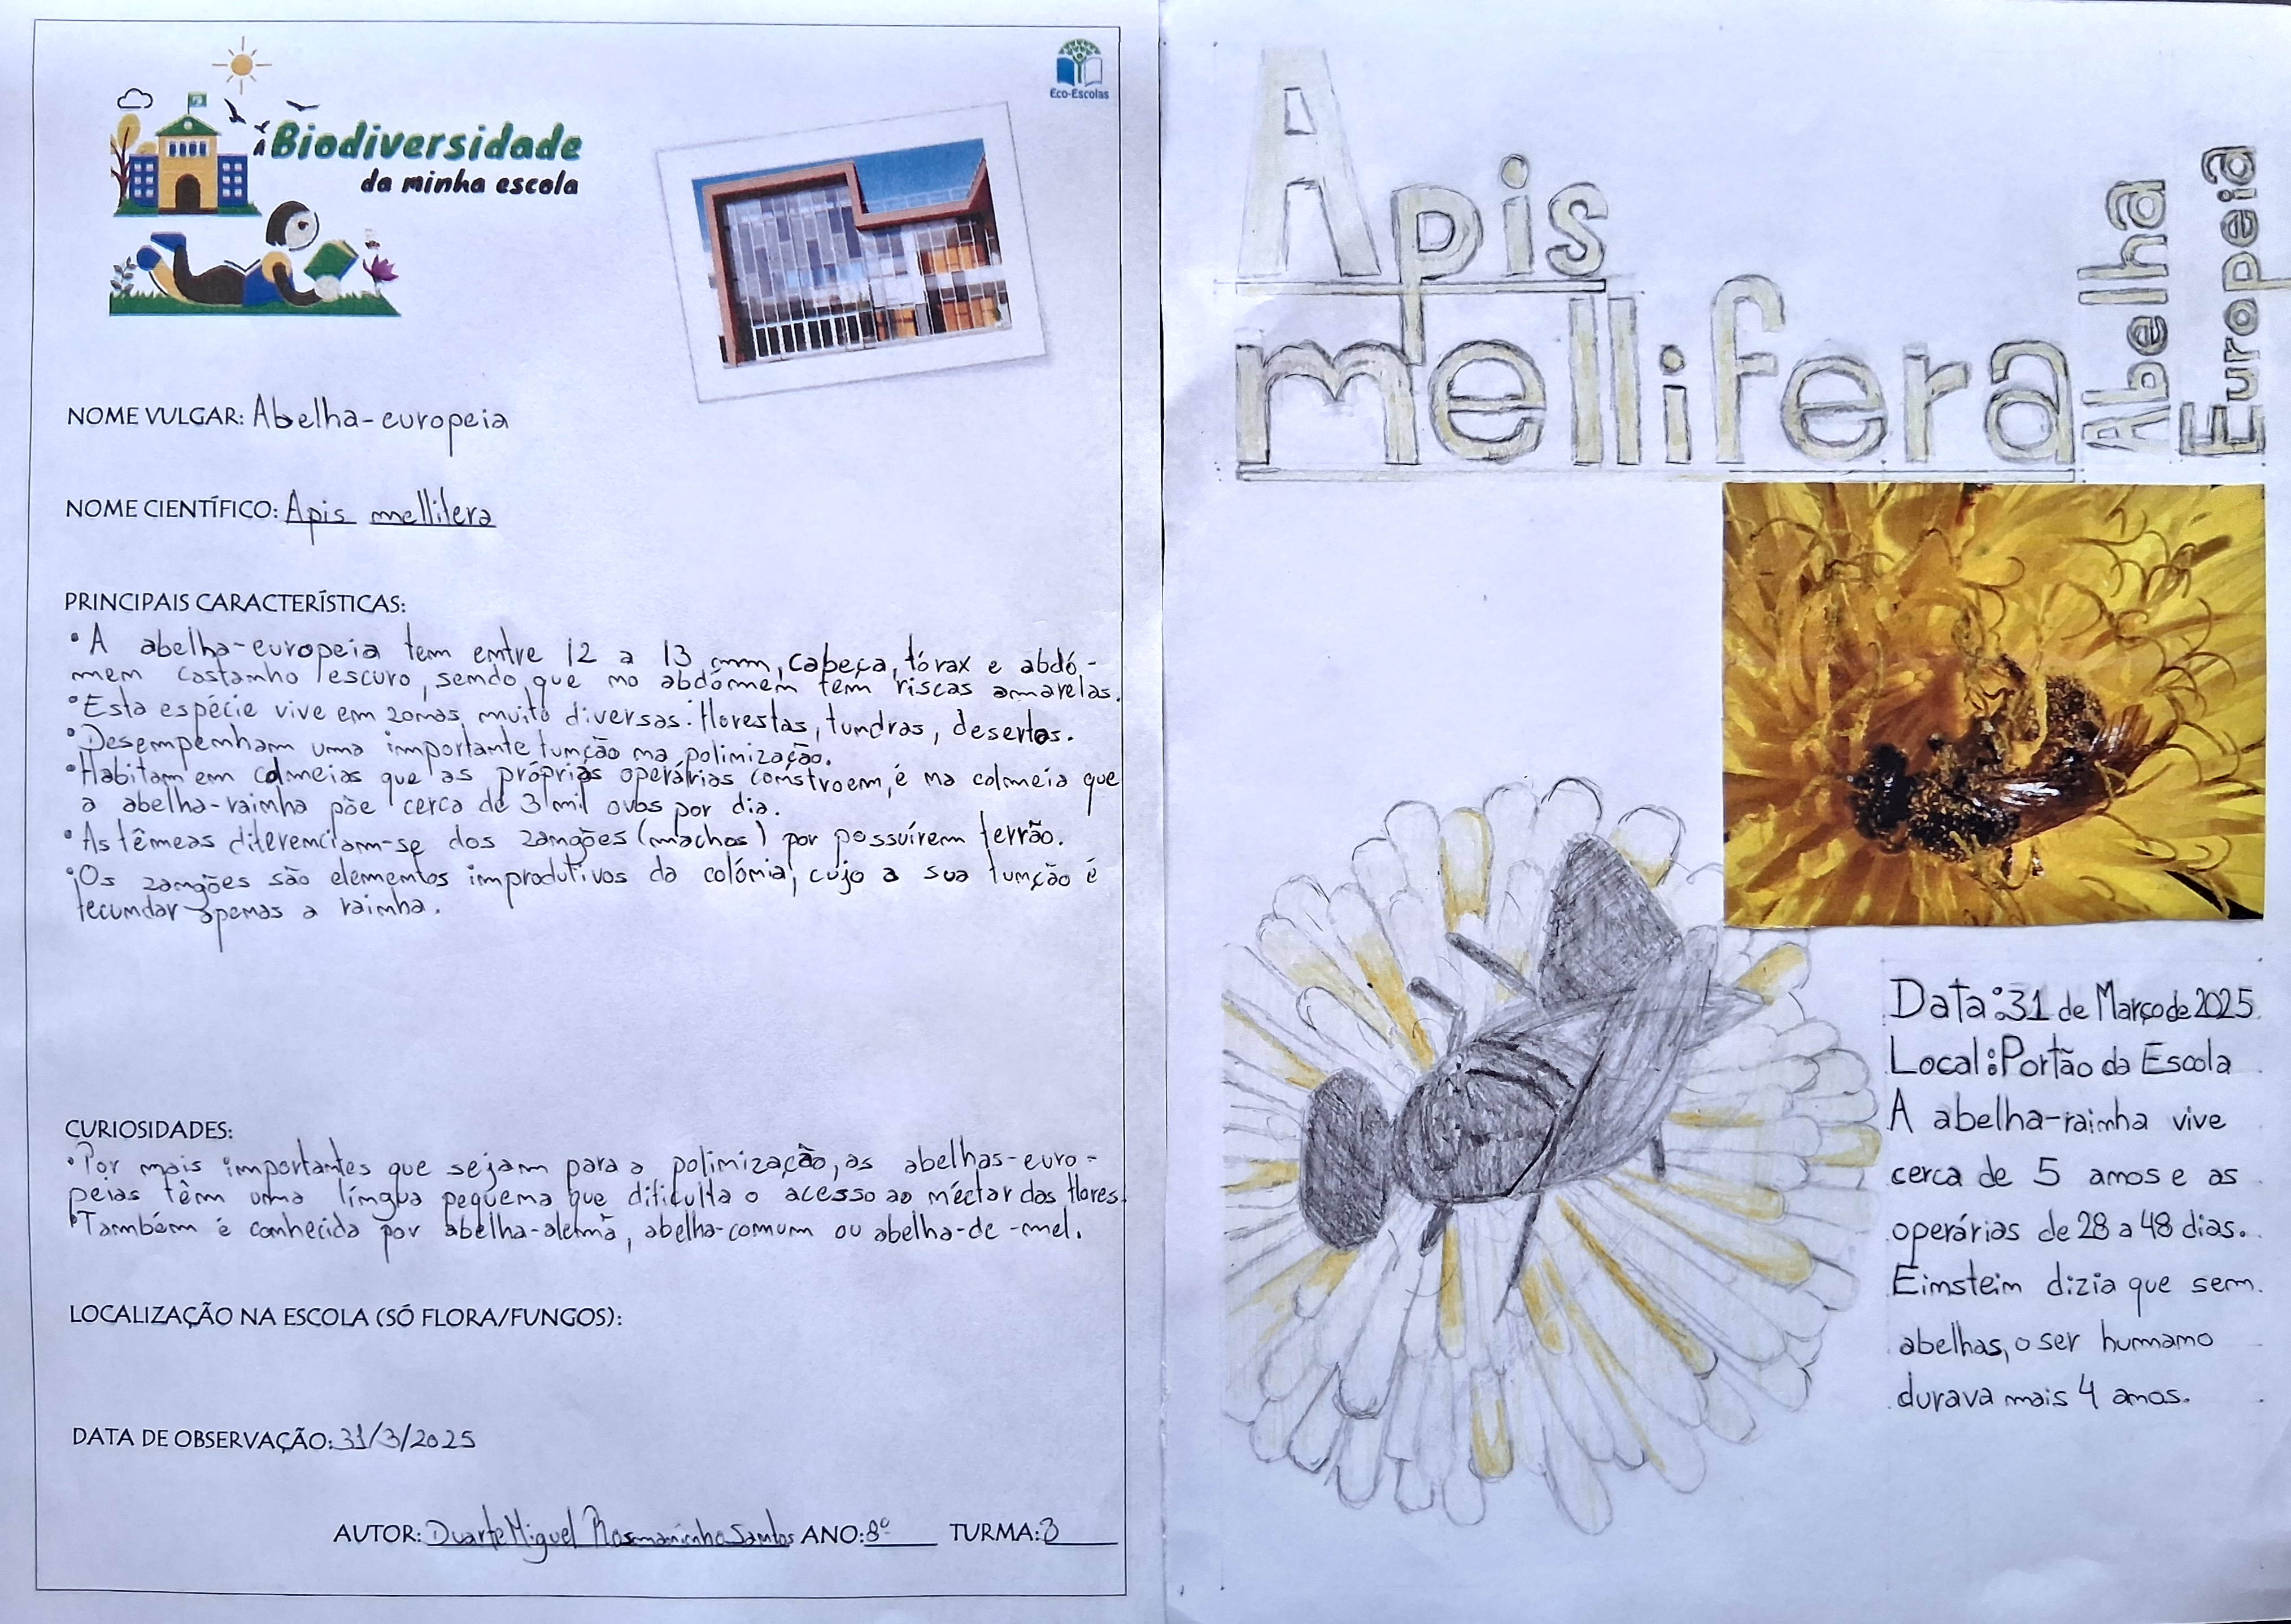 A Biodiversidade
da minha escola
Eco-Escolas
NOME VULGAR: Abelha-europeia
NOME CIENTÍFICO: Apis mellifera
PRINCIPAIS CARACTERÍSTICAS:
• A abelha-europeia tem entre 12 a 13 mm, cabeça, tórax e abdó-
mem castanho escuro, sendo que no abdómem tem riscas amarelas.
• Esta espécie vive em zonas muito diversas: florestas, tundras, desertos.
• Desempenham uma importante função na polinização.
• Habitam em colmeias que as próprias operárias constroem, é na colmeia que
a abelha-rainha põe cerca de 3 mil ovos por dia.
• As fêmeas diferenciam-se dos zangões (machos) por possuírem ferrão.
• Os zangões são elementos improdutivos da colónia, cujo a sua função é
fecundar apenas a rainha.
CURIOSIDADES:
• Por mais importantes que sejam para a polinização, as abelhas-euro-
peias têm uma língua pequena que dificulta o acesso ao néctar das flores.
• Também é conhecida por abelha-alemã, abelha-comum ou abelha-de-mel.
LOCALIZAÇÃO NA ESCOLA (SÓ FLORA/FUNGOS):
DATA DE OBSERVAÇÃO: 31/3/2025
AUTOR: Duarte Miguel Rosmaninho Santos ANO: 8º TURMA: 3
Apis
mellifera
Abelha
Europeia
Data: 31 de Março de 2025
Local: Portão da Escola
A abelha-rainha vive
cerca de 5 anos e as
operárias de 28 a 48 dias.
Einstein dizia que sem
abelhas, o ser humano
durava mais 4 anos.